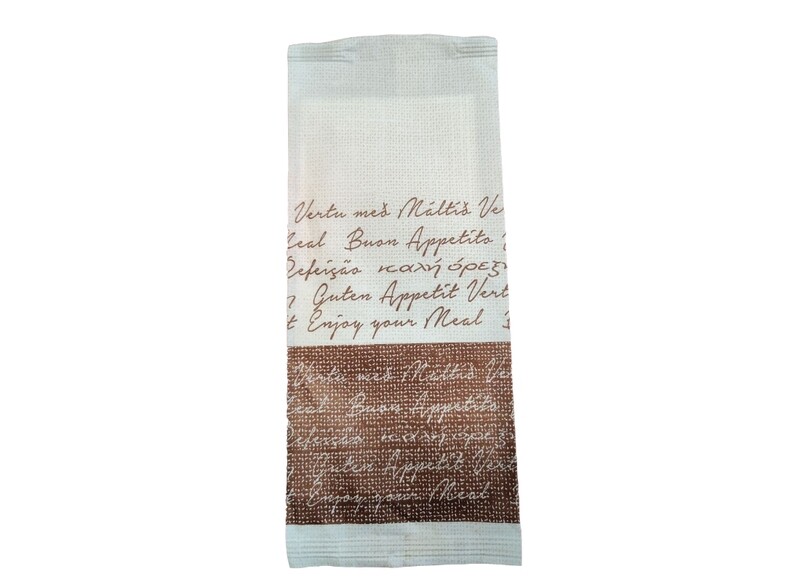 Vertu með Máltíð Ve
Meal Buon Appetito
Refeição καλή όρεξη
Guten Appetit Vert
t Enjoy your Meal B
Vertu með Máltíð Ve
Meal Buon Appetito
Refeição καλή όρεξη
Guten Appetit Vert
t Enjoy your Meal B